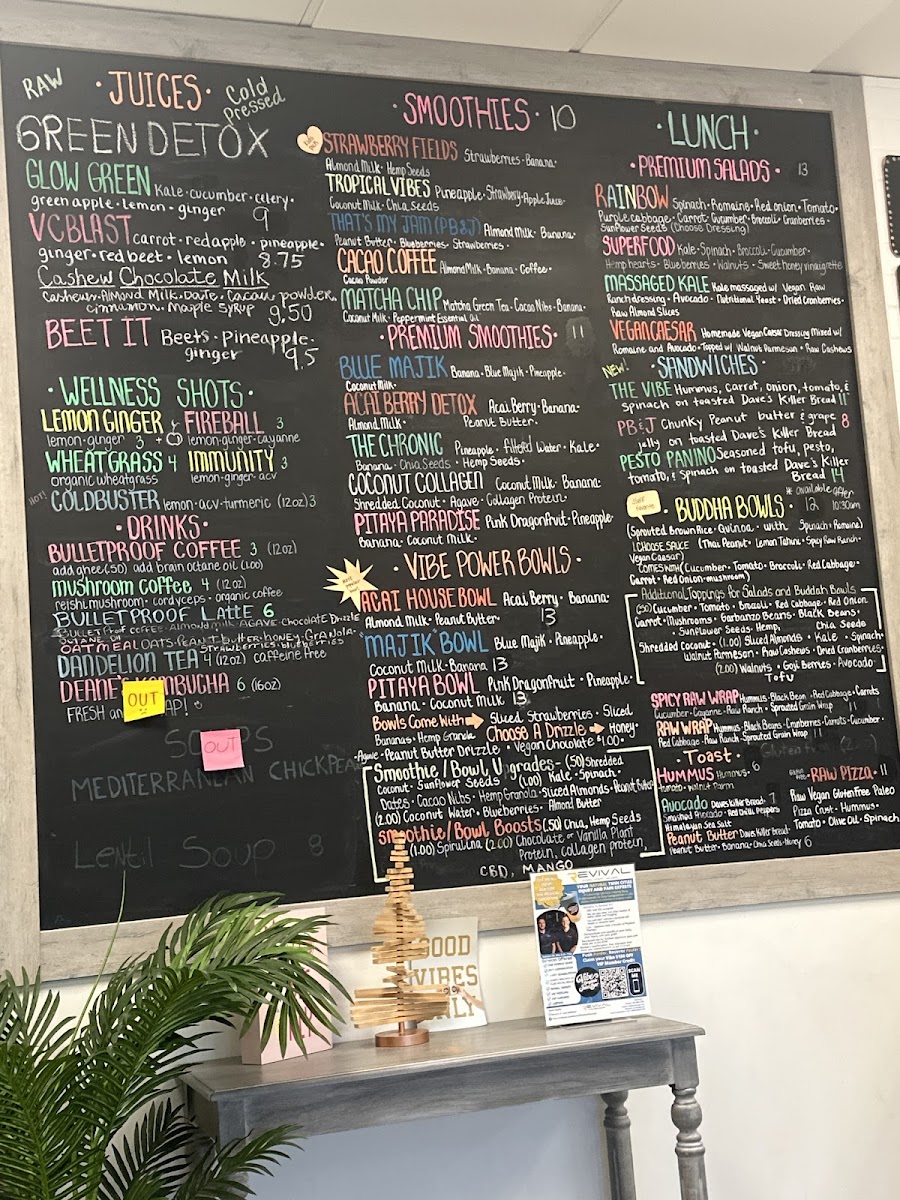 RAW
· JUICES ·
Cold
Pressed
GREEN DETOX
GLOW GREEN Kale · cucumber · celery ·
green apple · lemon · ginger 9
VC BLAST carrot · red apple · pineapple ·
ginger · red beet · lemon 8.75
Cashew Chocolate Milk
Cashews · Almond Milk · Date · Cacao powder ·
cinnamon · Maple Syrup 9.50
BEET IT Beets · Pineapple ·
ginger 9.5
· WELLNESS SHOTS ·
LEMON GINGER FIREBALL 3
lemon · ginger 3 lemon · ginger · cayanne
WHEATGRASS 4 IMMUNITY 3
organic wheatgrass lemon · ginger · acv
HOT! COLDBUSTER lemon · acv · turmeric (12oz) 3
· DRINKS ·
BULLETPROOF COFFEE 3 (12oz)
add ghee (.50) add brain octane oil (1.00)
mushroom coffee 4 (12oz)
reishi mushroom · cordyceps · organic coffee
BULLETPROOF LATTE 6
BULLET Proof coffee · Almond milk · AGAVE · Chocolate Drizzle
OATMEAL OATS · Peanut butter · honey · Granola ·
strawberries · blueberries
DANDELION TEA 4 (12oz) caffeine free
DEANE'S KOMBUCHA 6 (16oz)
FRESH
OUT
OUT
MEDITERRANEAN CHICKPEA
Lentil Soup 8
· SMOOTHIES · 10
STRAWBERRY FIELDS Strawberries · Banana ·
Almond Milk · Hemp Seeds
TROPICAL VIBES Pineapple · Strawbery · Apple Juice ·
Coconut Milk · Chia Seeds
THAT'S MY JAM (PB&J) Almond Milk · Banana ·
Peanut Butter · Blueberries · Strawberries ·
CACAO COFFEE Almond Milk · Banana · Coffee ·
Cacao Powder
MATCHA CHIP Matcha Green Tea · Cacao Nibs · Banana ·
Coconut Milk · Peppermint Essential Oil
· PREMIUM SMOOTHIES · 11
BLUE MAJIK Banana · Blue Majik · Pineapple ·
Coconut Milk ·
ACAI BERRY DETOX Acai Berry · Banana ·
Almond Milk · Peanut Butter ·
THE CHRONIC Pineapple · filtered Water · Kale ·
Banana · Chia Seeds · Hemp Seeds ·
COCONUT COLLAGEN Coconut Milk · Banana ·
Shredded Coconut · Agave · Collagen Protein ·
PITAYA PARADISE Pink Dragonfruit · Pineapple ·
Banana · Coconut Milk ·
· VIBE POWER BOWLS ·
ACAI HOUSE BOWL Acai Berry · Banana ·
Almond Milk · Peanut Butter · 13
"MAJIK" BOWL Blue Majik · Pineapple ·
Coconut Milk · Banana 13
PITAYA BOWL Pink Dragonfruit · Pineapple ·
Banana · Coconut Milk 13
Bowls Come With Sliced Strawberries · Sliced
Bananas · Hemp Granola · Choose A Drizzle Honey ·
Agave · Peanut Butter Drizzle · Vegan Chocolate $1.00 ·
Smoothie / Bowl Upgrades · (.50) Shredded
Coconut · Sunflower Seeds (1.00) Kale · Spinach ·
Dates · Cacao Nibs · Hemp Granola · Sliced Almonds · Peanut Butter
(2.00) Coconut Water · Blueberries · Almond Butter
Smoothie / Bowl Boosts (.50) Chia, Hemp Seeds
(1.00) Spirulina (2.00) Chocolate or Vanilla Plant
Protein, collagen protein,
CBD, MANGO
· LUNCH ·
· PREMIUM SALADS · 13
RAINBOW Spinach · Romaine · Red onion · Tomato ·
Purple cabbage · Carrot · Cucumber · Broccoli · Cranberries ·
Sunflower Seeds (Choose Dressing)
SUPERFOOD Kale · Spinach · Broccoli · Cucumber ·
Hemp hearts · Blueberries · Walnuts · Sweet honey vinaigrette
MASSAGED KALE Kale massaged w/ Vegan Raw
Ranch dressing · Avocado · Nutritional Yeast · Dried Cranberries ·
Raw Almond Slices
VEGAN CAESAR Homemade Vegan Caesar Dressing Mixed w/
Romaine and Avocado · Topped w/ Walnut Parmesan · Raw Cashews
NEW!
· SANDWICHES ·
THE VIBE Hummus, carrot, onion, tomato, &
spinach on toasted Dave's Killer Bread 11
PB&J Chunky Peanut butter & grape 8
jelly on toasted Dave's Killer Bread
PESTO PANINO Seasoned tofu, pesto,
tomato, & spinach on toasted Dave's Killer
Bread 14
* available after
10:30am
· BUDDHA BOWLS · 12
(Sprouted Brown Rice · Quinoa · with Spinach · Romaine)
1. CHOOSE SAUCE (Thai Peanut · Lemon Tahini · Spicy Raw Ranch ·
Vegan Caesar)
COMES WITH (Cucumber · Tomato · Broccoli · Red Cabbage ·
Carrot · Red Onion · mushroom)
Additional Toppings for Salads and Buddah Bowls
(.50) Cucumber · Tomato · Brocoli · Red Cabbage · Red Onion
Carrot · Mushrooms · Garbanzo Beans · Black Beans ·
Sunflower Seeds · Hemp, Chia Seeds
Shredded Coconut · (1.00) Sliced Almonds · Kale · Spinach ·
Walnut Parmesan · Raw Cashews · Dried Cranberries ·
(2.00) Walnuts · Goji Berries · Avocado ·
Tofu
SPICY RAW WRAP Hummus · Black Bean · Red Cabbage · Carrots
Cucumber · Cayanne · Raw Ranch · Sprouted Grain Wrap 11
RAW WRAP Hummus · Black Beans · Cranberries · Carrots · Cucumber ·
Red Cabbage · Raw Ranch · Sprouted Grain Wrap 11
· Toast ·
HUMMUS Hummus ·
Tomato · Walnut Parm
Avocado Daves Killer Bread · 7
Smashed Avocado · Red Chili Peppers
Himalayan Sea Salt
Peanut Butter Daves Killer Bread ·
Peanut Butter · Banana · Chia Seeds · Honey 6
RAW PIZZA · 11
Raw Vegan Gluten Free Paleo
Pizza Crust · Hummus ·
Tomato · Olive Oil · Spinach
GOOD
VIBES
ONLY
REVIVAL
YOUR NATURAL TWIN CITIES
INJURY AND PAIN EXPERTS
SCAN
ME